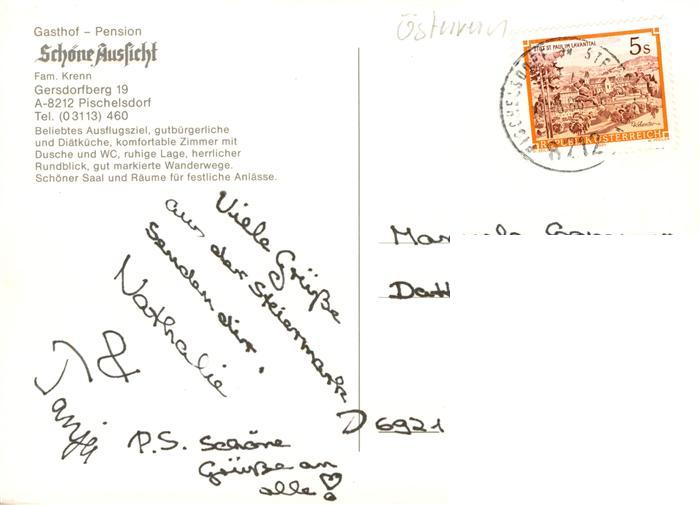 Gasthof – Pension
Schöne Aussicht
Fam. Krenn
Gersdorfberg 19
A-8212 Pischelsdorf
Tel. (03113) 460
Beliebtes Ausflugsziel, gutbürgerliche
und Diätküche, komfortable Zimmer mit
Dusche und WC, ruhige Lage, herrlicher
Rundblick, gut markierte Wanderwege.
Schöner Saal und Räume für festliche Anlässe.
STIFT ST. PAUL IM LAVANTTAL
5s
REPUBLIK ÖSTERREICH
PISCHELSDORF
8212
Viele Grüße
aus der Steiermark
senden dir.
Nathalie
&
Tanja
P.S. Schöne
Grüße an
alle!
D 6921